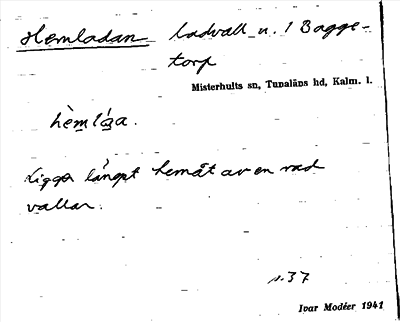 Hemladan ladvall u. 1 Bagge-
torp
Misterhults sn, Tunaläns hd, Kalm. l.
hèmláa.
Ligger längst hemåt av en rad
vallar.
s. 37
Ivar Modéer 1941